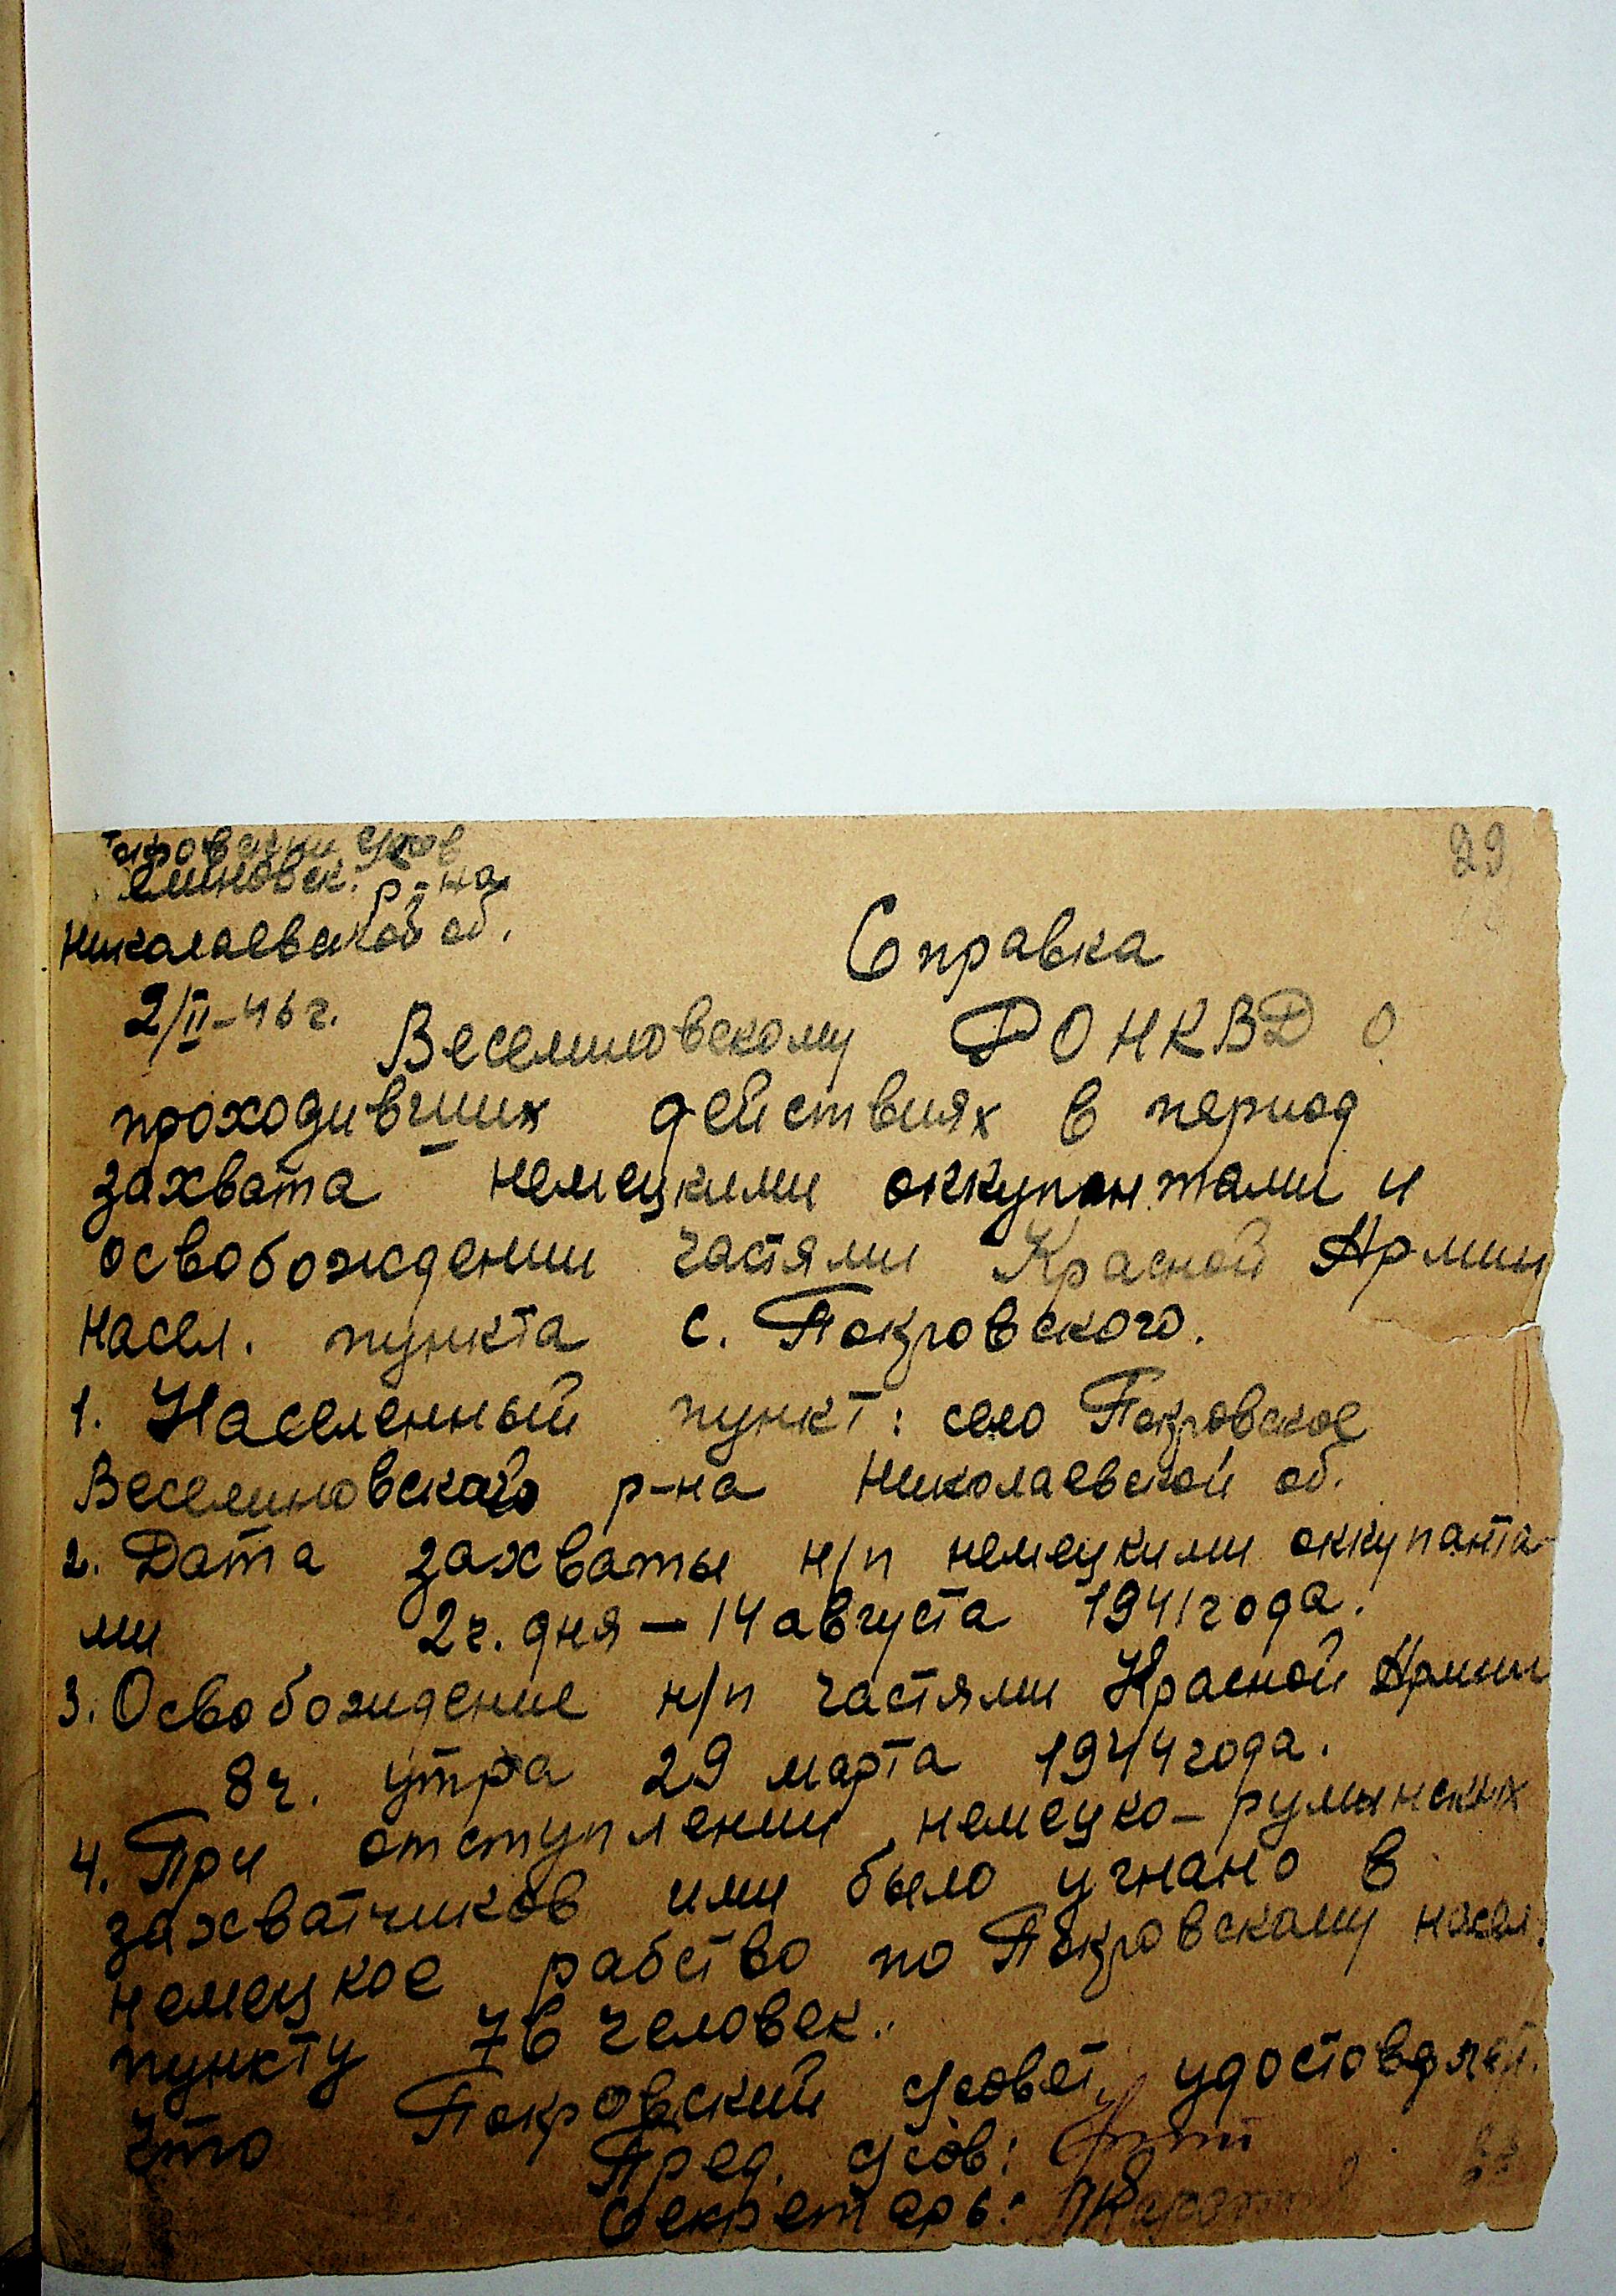 29
елиновск. р-на
Николаевской об.
Справка
2/II-46г.
Веселиновскому РОНКВД о
проходивших действиях в период
захвата немецкими оккупантами и
освобождении частями Красной Армии
насел. пункта с. Покровского.
1. Населенный пункт: село Покровское
Веселиновского р-на Николаевской об.
2. Дата захваты н/п немецкими оккупанта-
ми 2ч. дня — 14 августа 1941 года.
3. Освобождение н/п частями Красной Армии
8ч. утра 29 марта 1944 года.
4. При отступлении немецко-румынских
захватчиков ими было угнано в
немецкое рабство по Покровскому насел.
пункту 76 человек.
Что Покровский с/совет удостоверяет.
Пред. с/сов:
Секретарь: